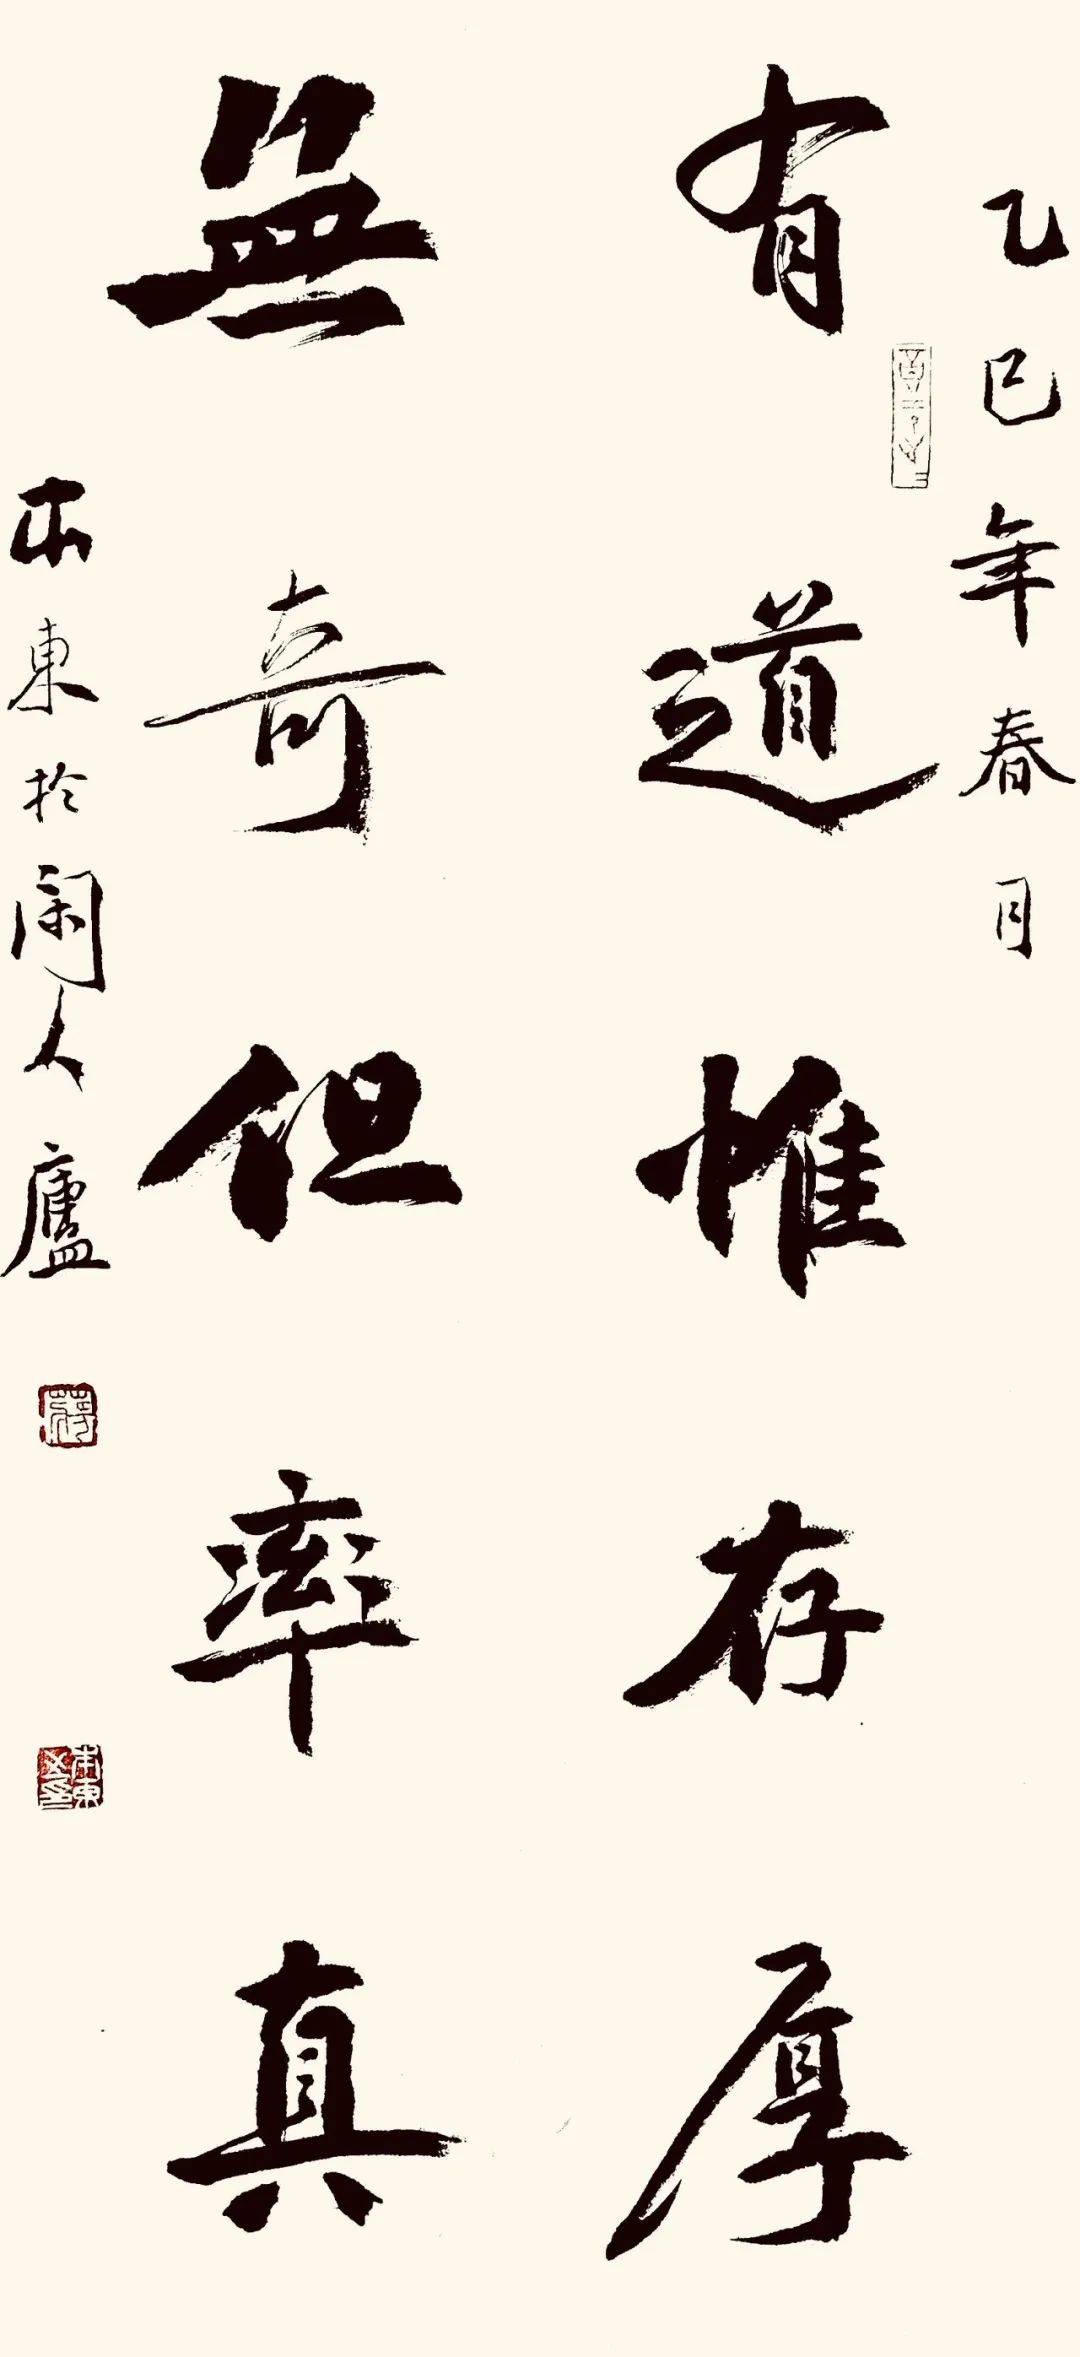 乙巳年春月
有道惟存厚
無奇但率真
本東於閑人廬